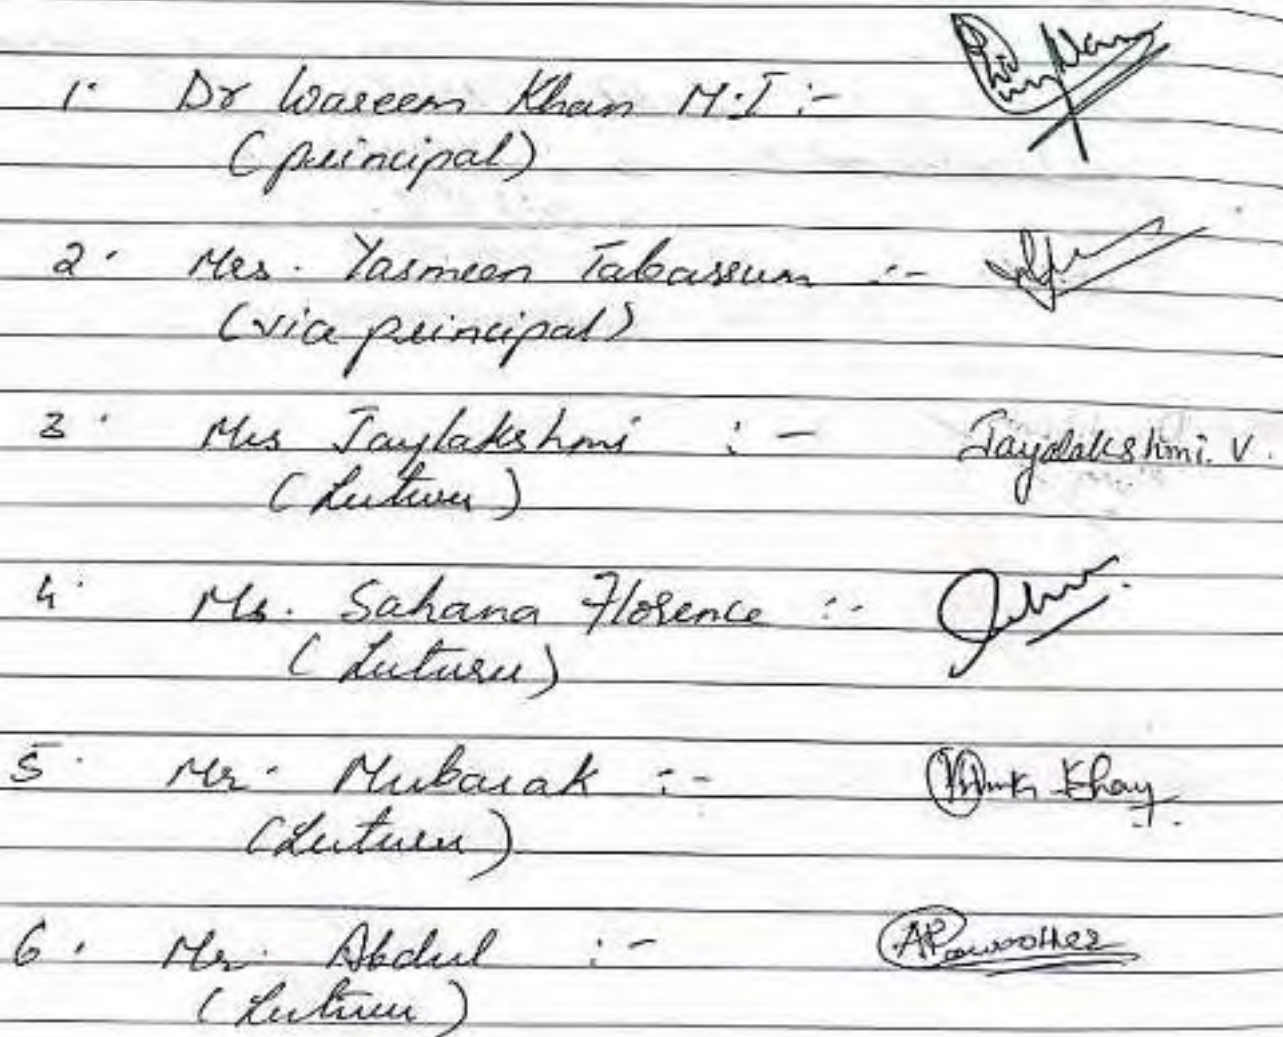 1. Dr Waseem Khan M.I :-
(principal)
2. Mrs. Yasmeen Tabassum :-
(vice principal)
3. Mrs Jaylakshmi :- Jayalakshmi. V.
(Lecturer)
4. Ms. Sahana Florence :-
(Lecturer)
5. Mr. Mubarak :- Khan
(Lecturer)
6. Mr. Abdul :-
(Lecturer)